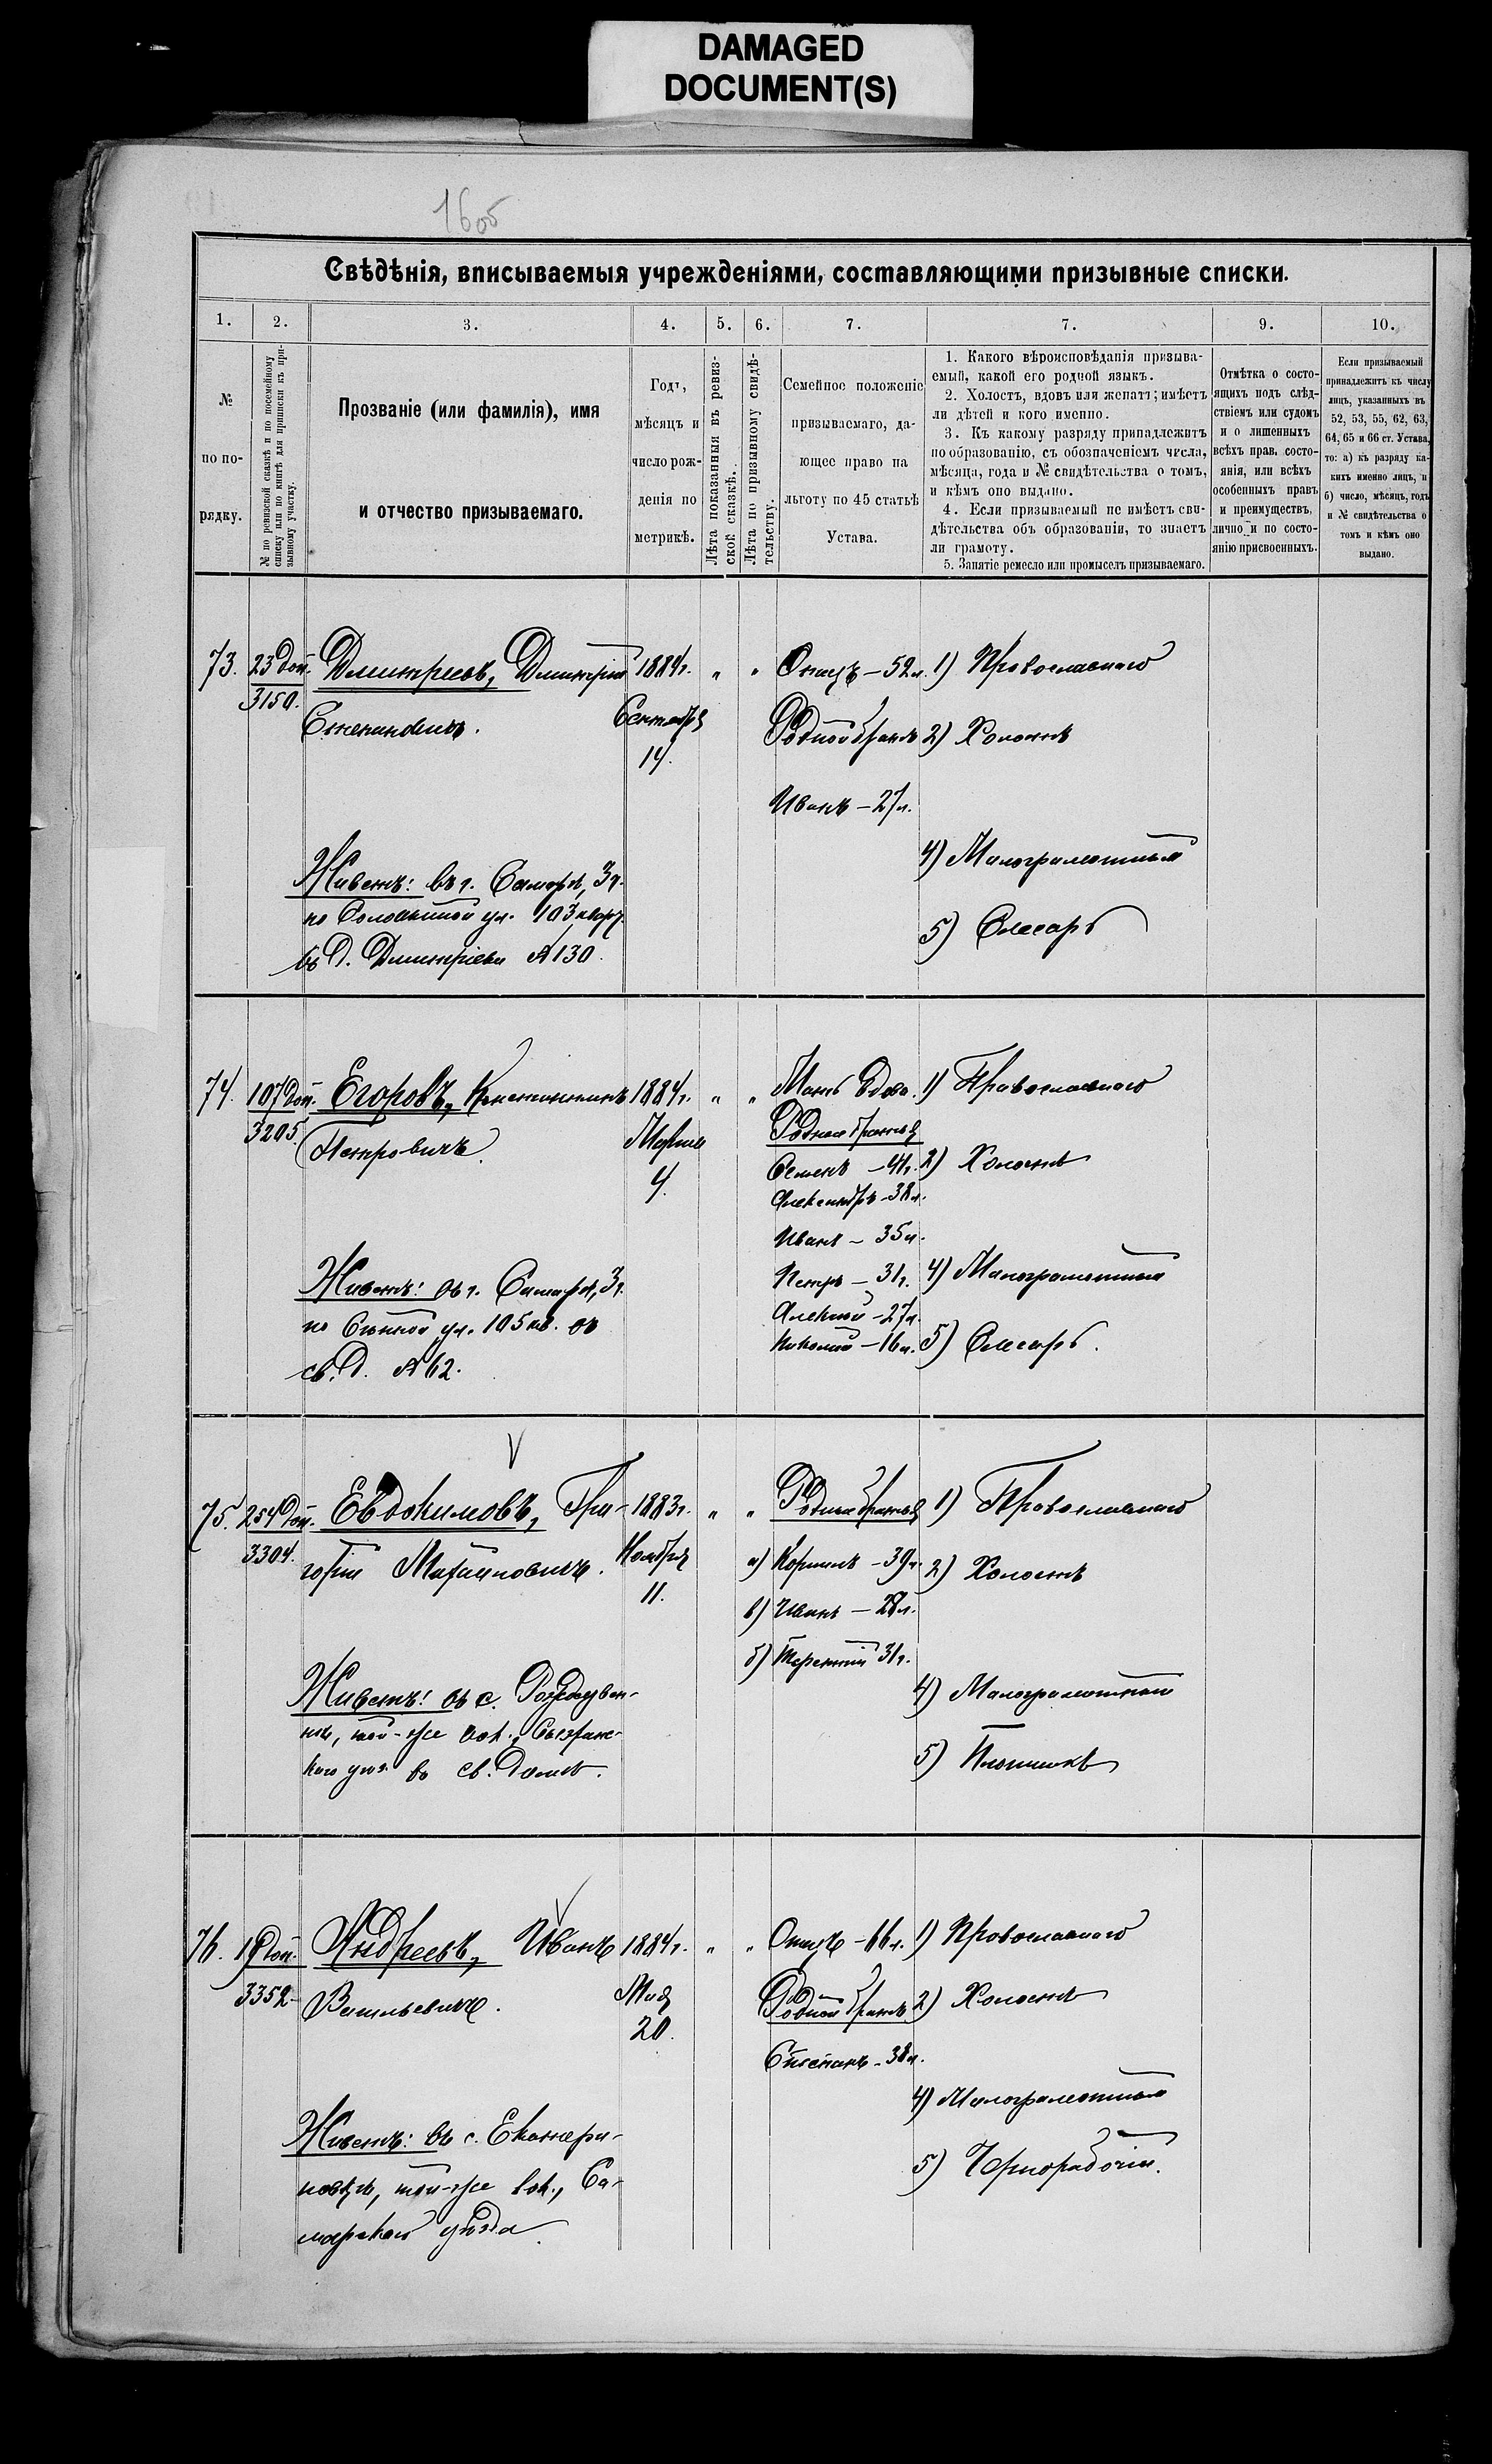 DAMAGED
DOCUMENT(S)
16об
Свѣдѣнія, вписываемыя учрежденіями, составляющими призывные списки.
1. 2. 3. 4. 5. 6. 7. 7. 9. 10.
№
по по-
рядку.
№ по ревизской сказкѣ и по посемейному
списку или по книгѣ для приписки къ при-
зывному участку.
Прозваніе (или фамилія), имя
и отчество призываемаго.
Годъ,
мѣсяцъ и
число рож-
денія по
метрикѣ.
Лѣта показанныя въ ревиз-
ской сказкѣ.
Лѣта по призывному свидѣ-
тельству.
Семейное положеніе
призываемаго, да-
ющее право на
льготу по 45 статьѣ
Устава.
1. Какого вѣроисповѣданія призыва-
емый, какой его родной языкъ.
2. Холостъ, вдовъ или женатъ; имѣетъ
ли дѣтей и кого именно.
3. Къ какому разряду принадлежитъ
по образованію, съ обозначеніемъ числа,
мѣсяца, года и № свидѣтельства о томъ,
и кѣмъ оно выдано.
4. Если призываемый не имѣетъ сви-
дѣтельства объ образованіи, то знаетъ
ли грамоту.
5. Занятіе ремесло или промыселъ призываемаго.
Отмѣтка о состо-
ящихъ подъ слѣд-
ствіемъ или судомъ
и о лишенныхъ
всѣхъ прав. состо-
янія, или всѣхъ
особенныхъ правъ
и преимуществъ,
лично и по состо-
янію присвоенныхъ.
Если призываемый
принадлежитъ къ числу
лицъ, указанныхъ въ
52, 53, 55, 62, 63,
64, 65 и 66 ст. Устава,
то: а) къ разряду ка-
кихъ именно лицъ, и
б) число, мѣсяцъ, годъ
и № свидѣтельства о
томъ и кѣмъ оно
выдано.
73. 23 доп. Дмитреевъ, Дмитрій 1884г. " " Отецъ – 52л. 1) Православнаго
3150. Степановичъ. Сентября Родной братъ 2) Холостъ
14.
Иванъ – 27л.
Живетъ: въ г. Самарѣ, 3ч. 4) Малограмотный
по Соловьиной ул. 103 кварт.
въ д. Дмитріева № 130. 5) Слесарь
74. 107 доп. Егоровъ, Константинъ 1884г. " " Мать вдова. 1) Православнаго
3205. Петровичъ. Марта Родные братья
4. Семенъ – 41г. 2) Холостъ
Александръ – 38л.
Иванъ – 35л.
Живетъ: въ г. Самарѣ, 3ч. Петръ – 31г. 4) Малограмотный
по Сѣнной ул. 105 кв. въ Алексѣй – 27л.
св. д. № 62. Николай – 16л. 5) Слесарь.
75. 254 доп. Евдокимовъ, Гри- 1883г. " " Родные братья 1) Православнаго
3304. горій Михайловичъ. Ноября а) Корнилъ – 39л. 2) Холостъ
11. в) Иванъ – 28л.
б) Терентій 31г.
Живетъ: въ с. Рождествен- 4) Малограмотный
нѣ, той-же вол., Сызранс-
каго уѣз. въ св. домѣ. 5) Плотникъ
76. доп. Андреевъ, Иванъ 1884г. " " Отецъ – 66л. 1) Православнаго
3352. Васильевичъ. Мая Родной братъ 2) Холостъ
20. Степанъ – 38л.
4) Малограмотный
Живетъ: въ с. Екатери-
новкѣ, той-же вол., Са- 5) Чернорабочій.
марскаго уѣзда.